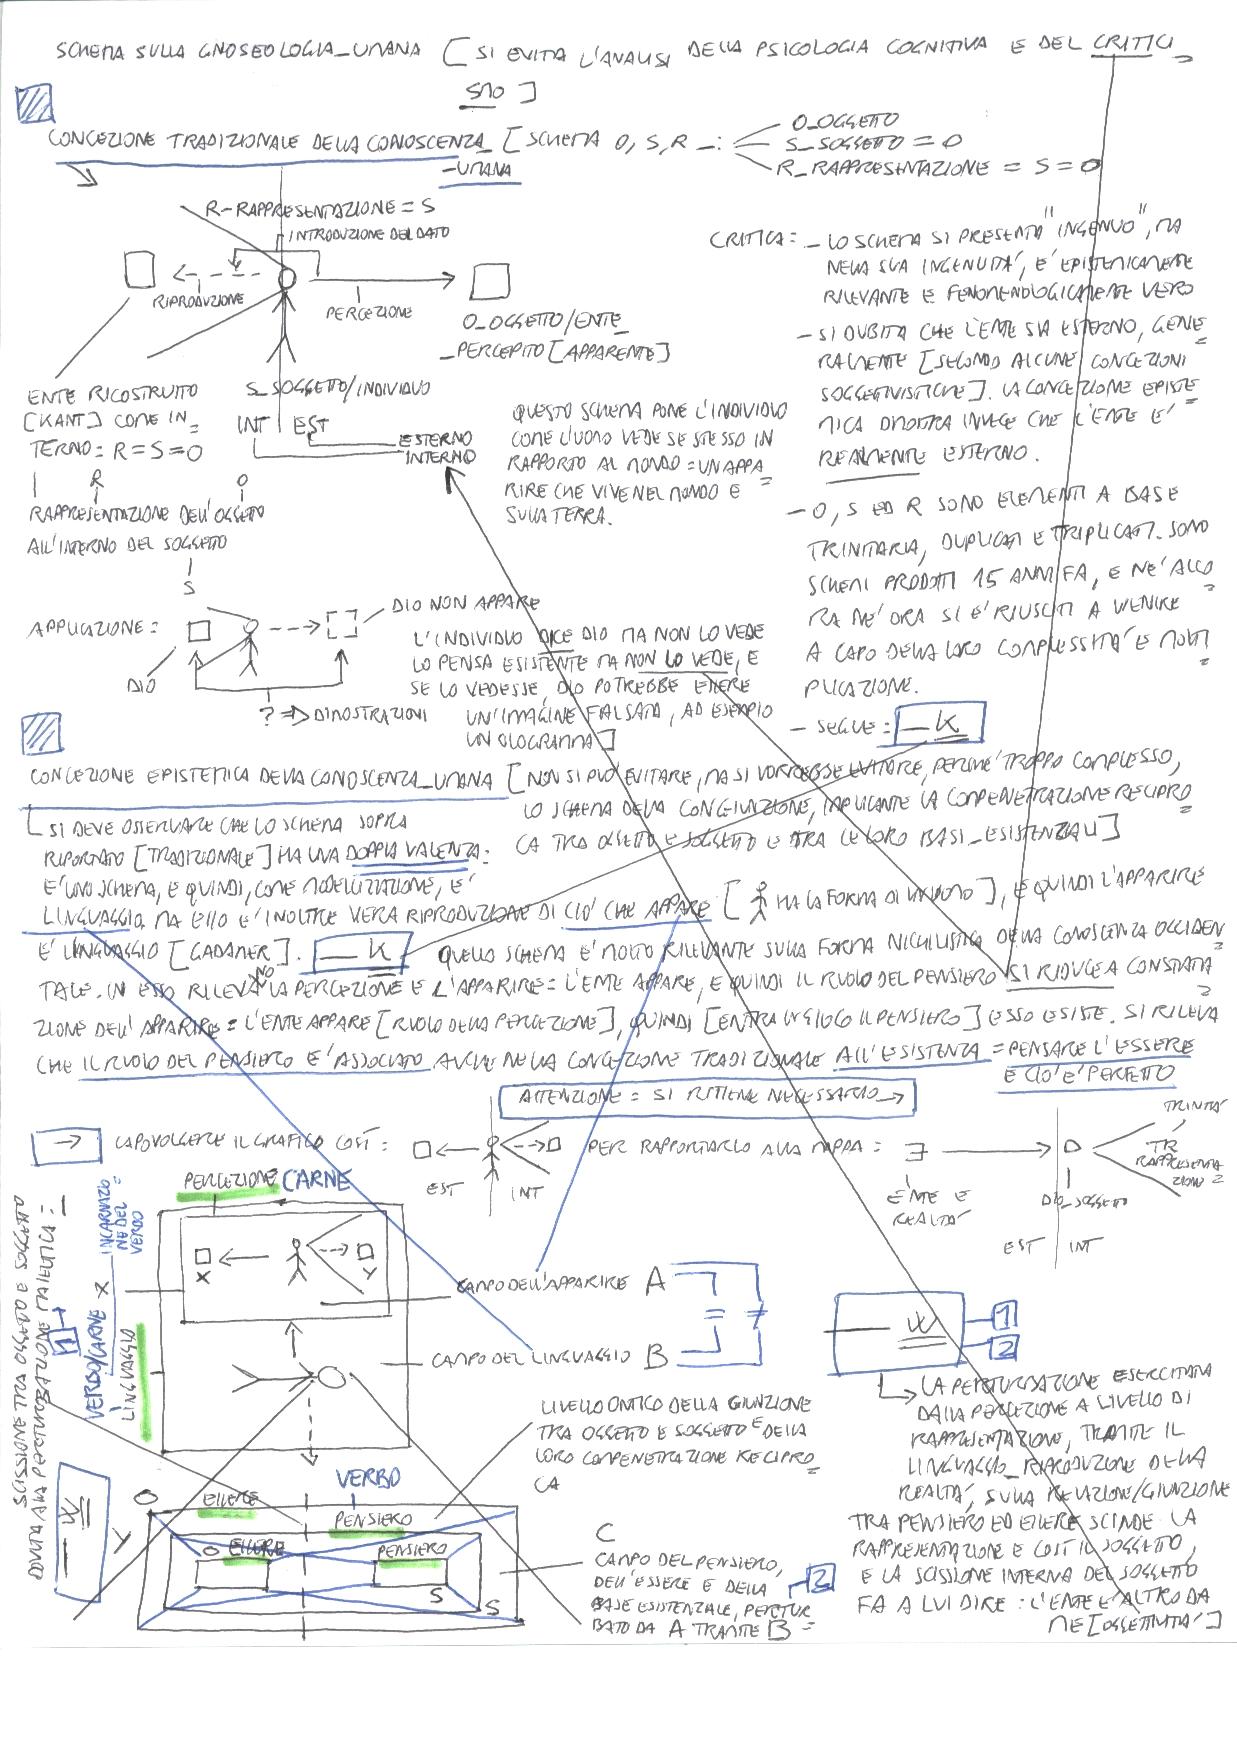 SCHEMA SULLA GNOSEOLOGIA_UMANA [SI EVITA L'ANALISI DELLA PSICOLOGIA COGNITIVA E DEL CRITICI_
SMO]
CONCEZIONE TRADIZIONALE DELLA CONOSCENZA_ [SCHEMA O, S, R _:
_UMANA
O_OGGETTO
S_SOGGETTO = O
R_RAPPRESENTAZIONE = S = O
R-RAPPRESENTAZIONE = S
INTRODUZIONE DEL DATO
RIPRODUZIONE
PERCEZIONE
O_OGGETTO/ENTE_
_PERCEPITO [APPARENTE]
ENTE RICOSTRUITO
[KANT] COME IN_
TERNO: R=S=O
R
O
RAPPRESENTAZIONE DELL'OGGETTO
ALL'INTERNO DEL SOGGETTO
S
S_SOGGETTO/INDIVIDUO
INT EST
ESTERNO
INTERNO
QUESTO SCHEMA PONE L'INDIVIDUO
COME L'UOMO VEDE SE STESSO IN
RAPPORTO AL MONDO = UN APPA=
RIRE CHE VIVE NEL MONDO E
SULLA TERRA.
CRITICA: _ LO SCHEMA SI PRESENTA "INGENUO", MA
NELLA SUA INGENUITÀ, E' EPISTEMICAMENTE
RILEVANTE E FENOMENOLOGICAMENTE VERO
- SI DUBITA CHE L'ENTE SIA ESTERNO, GENE=
RALMENTE [SECONDO ALCUNE CONCEZIONI
SOGGETTIVISTICHE]. LA CONCEZIONE EPISTE=
MICA DIMOSTRA INVECE CHE L'ENTE E'
REALMENTE ESTERNO.
- O, S ED R SONO ELEMENTI A BASE
TRINITARIA, DUPLICATI E TRIPLICATI. SONO
SCHEMI PRODOTTI 15 ANNI FA, E NE' ALLO=
RA NE' ORA SI E' RIUSCITI A VENIRE
A CAPO DELLA LORO COMPLESSITA' E MOLTI=
PLICAZIONE.
- SEGUE: _K
APPLICAZIONE:
DIO
DIO NON APPARE
? => DIMOSTRAZIONI
L'INDIVIDUO DICE DIO MA NON LO VEDE
LO PENSA ESISTENTE MA NON LO VEDE, E
SE LO VEDESSE, DIO POTREBBE ESSERE
UN'IMAGINE FALSATA, AD ESEMPIO
UN OLOGRAMMA]
CONCEZIONE EPISTEMICA DELLA CONOSCENZA_UMANA [NON SI PUO' EVITARE, MA SI VORREBBE EVITARE, PERCHE' TROPPO COMPLESSO,
LO SCHEMA DELLA CONGIUNZIONE, IMPLICANTE LA COMPENETRAZIONE RECIPRO=
CA TRA OGGETTO E SOGGETTO E TRA LE LORO BASI_ESISTENZIALI]
SI DEVE OSSERVARE CHE LO SCHEMA SOPRA
RIPORTATO [TRADIZIONALE] HA UNA DOPPIA VALENZA:
E' UNO SCHEMA, E QUINDI, COME MODELLIZZAZIONE, E'
LINGUAGGIO, MA ESSO E' INOLTRE VERA RIPRODUZIONE DI CIO' CHE APPARE [HA LA FORMA DI UN UOMO], E QUINDI L'APPARIRE
E' LINGUAGGIO [GADAMER]. _K QUELLO SCHEMA E' MOLTO RILEVANTE SULLA FORMA NICHILISTICA DELLA CONOSCENZA OCCIDEN=
TALE. IN ESSO RILEVANO LA PERCEZIONE E L'APPARIRE = L'ENTE APPARE, E QUINDI IL RUOLO DEL PENSIERO SI RIDUCE A CONSTATA=
ZIONE DELL'APPARIRE = L'ENTE APPARE [RUOLO DELLA PERCEZIONE], QUINDI [ENTRA IN GIOCO IL PENSIERO] ESSO ESISTE. SI RILEVA
CHE IL RUOLO DEL PENSIERO E' ASSOCIATO ANCHE NELLA CONCEZIONE TRADIZIONALE ALL'ESISTENZA = PENSARE L'ESSERE
E CIO' E' PERFETTO
ATTENZIONE = SI RITIENE NECESSARIO →
→ CAPOVOLGERE IL GRAFICO COSI':
EST INT
PER RAPPORTARLO ALLA MAPPA:
ENTE E
REALTA'
DIO_SOGGETTO
TRINITA'
TR
RAPPRESENTA
ZIONI
EST INT
SCISSIONE TRA OGGETTO E SOGGETTO
DOVUTA ALLA PERTURBAZIONE MAIEUTICA:
1
VERBO/CARNE X
INCARNAZIO=
NE DEL
VERBO
LINGUAGGIO
PERCEZIONE CARNE
X
Y
CAMPO DELL'APPARIRE A
CAMPO DEL LINGUAGGIO B
= ≠
W
1
2
LA PERTURBAZIONE ESERCITATA
DALLA PERCEZIONE A LIVELLO DI
RAPPRESENTAZIONE, TRAMITE IL
LINGUAGGIO_RIPRODUZIONE DELLA
REALTA', SULLA RELAZIONE/GIUNZIONE
TRA PENSIERO ED ESSERE SCINDE LA
RAPPRESENTAZIONE E COSI' IL SOGGETTO,
E LA SCISSIONE INTERNA DEL SOGGETTO
FA A LUI DIRE: L'ENTE E' ALTRO DA
ME [OGGETTIVITA']
LIVELLO ONTICO DELLA GIUNZIONE
TRA OGGETTO E SOGGETTO E DELLA
LORO COMPENETRAZIONE RECIPRO=
CA
VERBO
W
Y
O
ESSERE
PENSIERO
O ESSERE
PENSIERO
S
S
C
CAMPO DEL PENSIERO,
DELL'ESSERE E DELLA
BASE ESISTENZIALE, PERTUR=
BATO DA A TRAMITE B
2